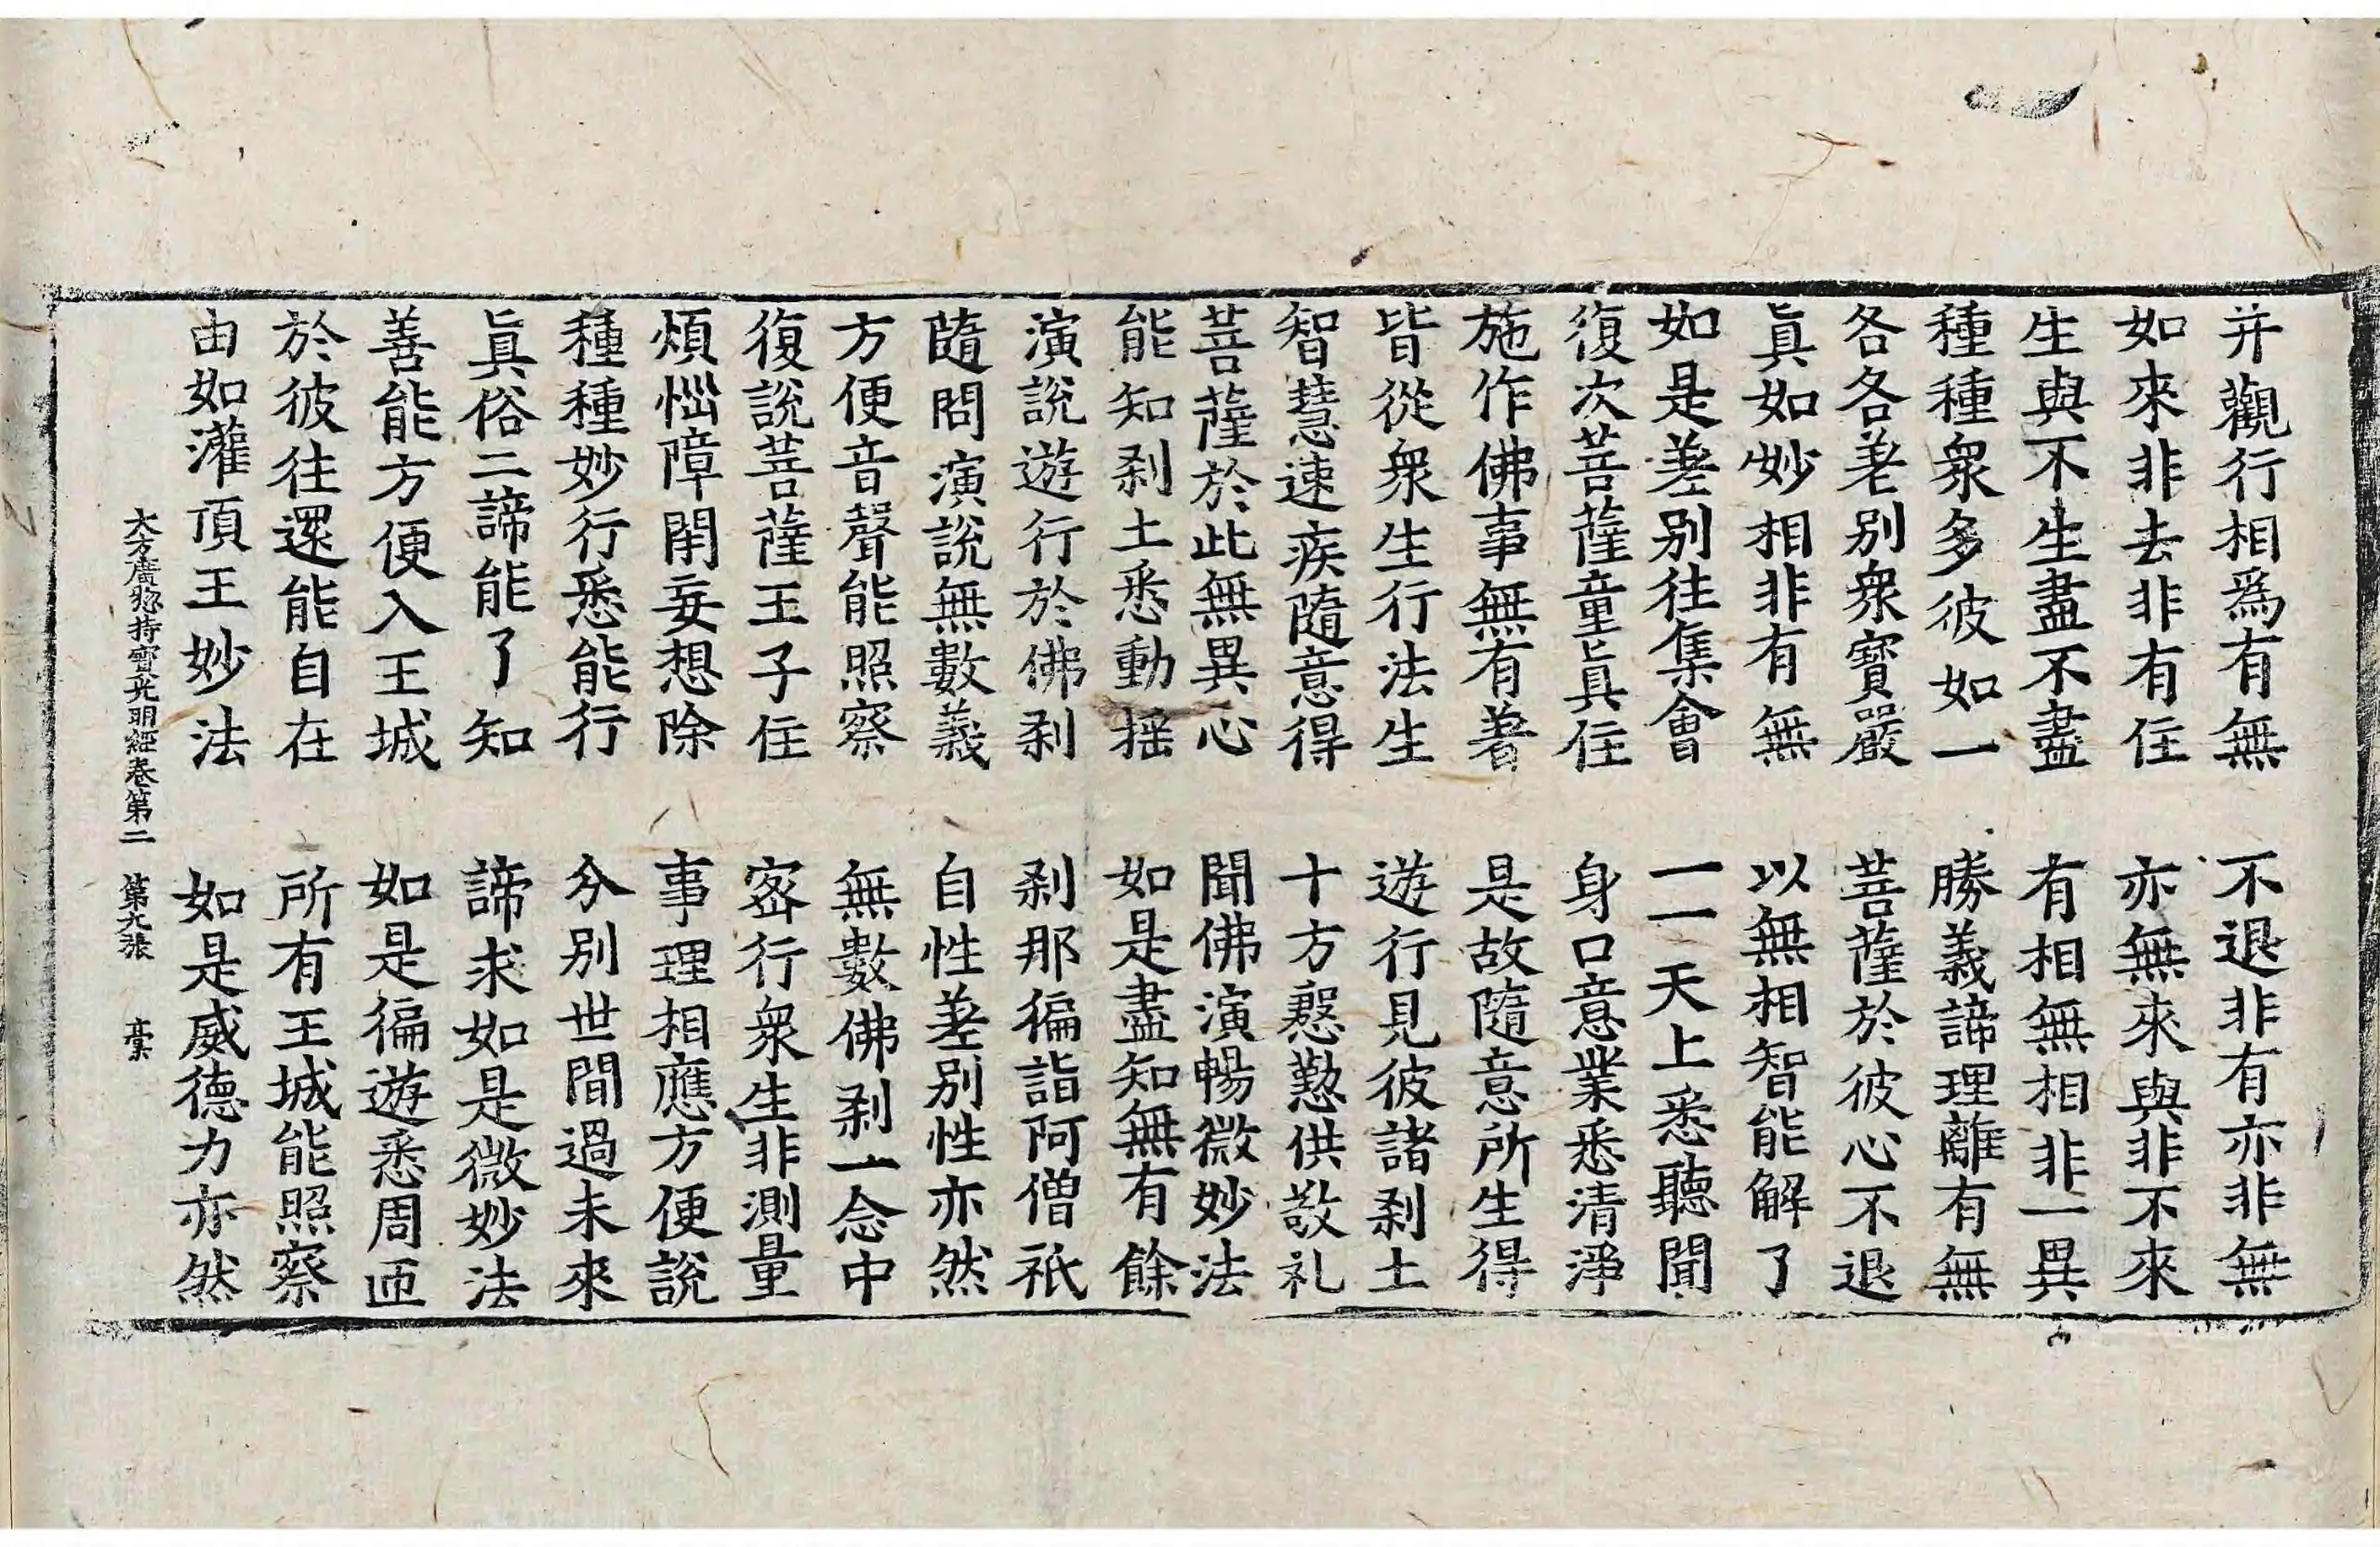 并觀行相爲有無　不退非有亦非無
如來非去非有住　亦無來與非不來
生與不生盡不盡　有相無相非一異
種種衆多彼如一　勝義諦理離有無
各各差別衆寶嚴　菩薩於彼心不退
眞如妙相非有無　以無相智能解了
如是差別往集會　一一天上悉聽聞
復次菩薩童眞住　身口意業悉清淨
施作佛事無有著　是故隨意所生得
皆從衆生行法生　遊行見彼諸剎土
智慧速疾隨意得　十方慇懃供敬礼
菩薩於此無異心　聞佛演暢微妙法
能知剎土悉動搖　如是盡知無有餘
演說遊行於佛剎　剎那徧詣阿僧祇
隨問演說無數義　自性差別性亦然
方便音聲能照察　無數佛剎一念中
復說菩薩王子住　密行衆生非測量
煩惱障閉妄想除　事理相應方便說
種種妙行悉能行　分別世間過未來
眞俗二諦能了知　諦求如是微妙法
善能方便入王城　如是徧遊悉周匝
於彼往還能自在　所有王城能照察
由如灌頂王妙法　如是威德力亦然
大方廣惣持寶光明經卷第二　第九張　稾